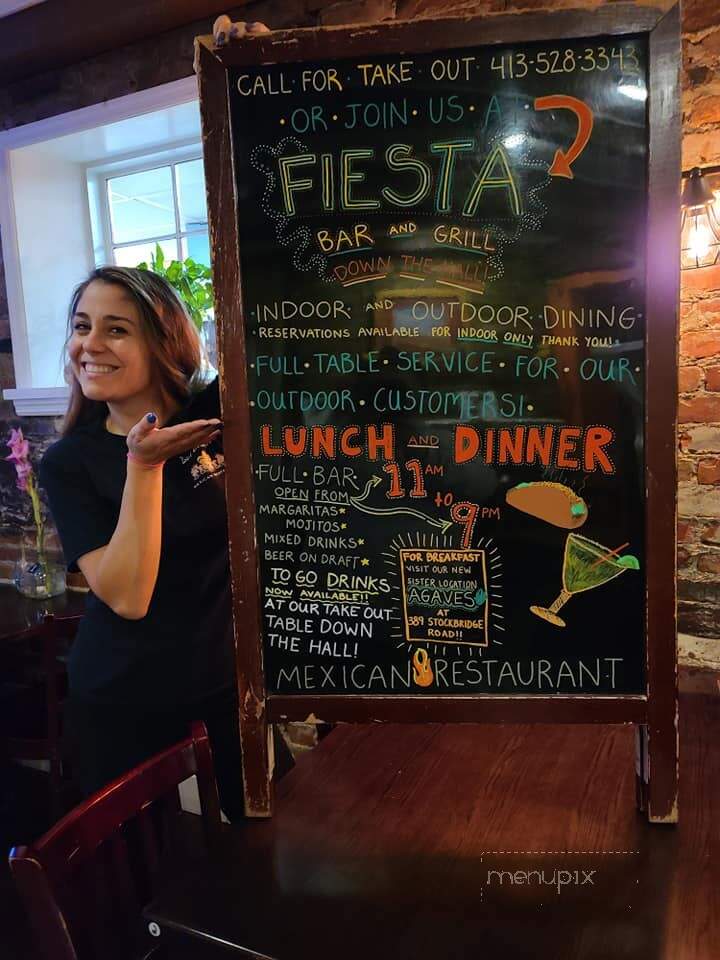 CALL · FOR · TAKE · OUT · 413-528-3343
· OR · JOIN · US · AT
FIESTA
BAR AND GRILL
DOWN THE HALL!
· INDOOR · AND · OUTDOOR · DINING ·
· RESERVATIONS AVAILABLE FOR INDOOR ONLY THANK YOU! ·
· FULL · TABLE · SERVICE · FOR · OUR ·
· OUTDOOR · CUSTOMERS! ·
LUNCH AND DINNER
· FULL · BAR ·
OPEN FROM
11 AM
TO
9 PM
MARGARITAS*
MOJITOS*
MIXED DRINKS*
BEER ON DRAFT*
TO GO DRINKS
NOW AVAILABLE!!
AT OUR TAKE OUT
TABLE DOWN
THE HALL!
FOR BREAKFAST
VISIT OUR NEW
SISTER LOCATION
AGAVES
AT
389 STOCKBRIDGE
ROAD!!
MEXICAN RESTAURANT
menupix